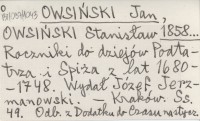 OWSIŃSKI Jan,
OWSIŃSKI Stanisław 1858...
Roczniki do dziejów Podta-
trza i Spiża z lat 1680-
-1748. Wydał Józef Jerz-
manowski. - Kraków Ss.
49. Odb. z Dodatku do Czasu